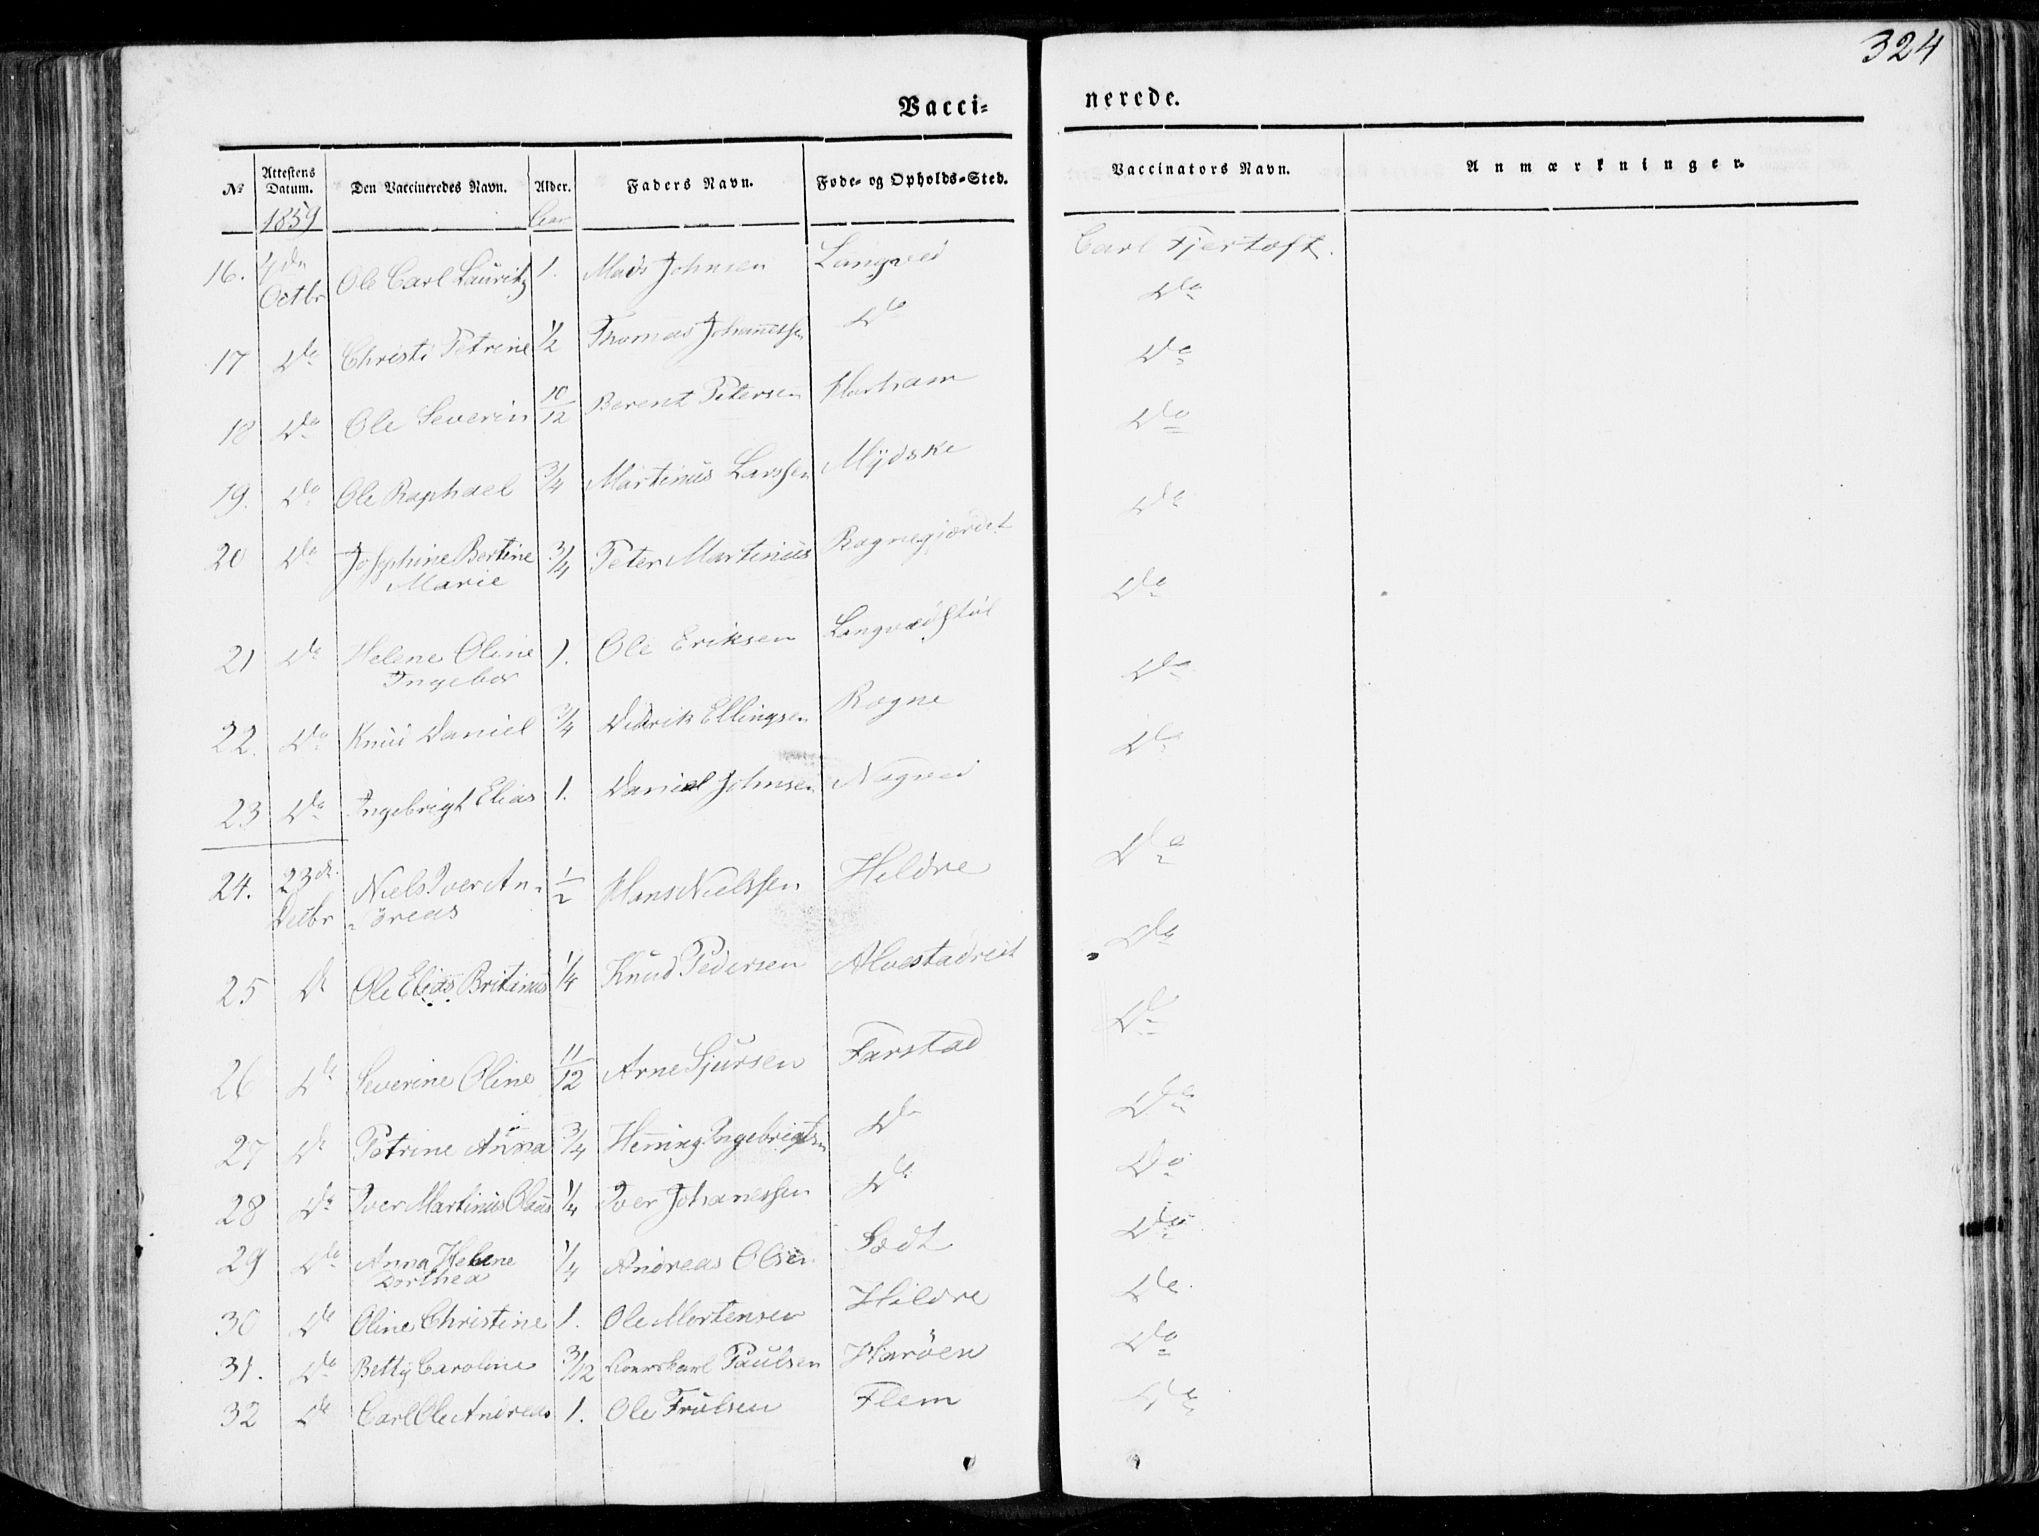 324
Vacci= nerede.
№ Attestens Datum. Den Vaccineredes Navn. Alder. Faders Navn. Fode- og Opholds-Sted. Vaccinators Navn. Anmærkninger.
1859 Aar
16. 4de Octbr Ole Carl Lauritz 1. Mads Johnsen Longved Carl Fjertoft.
17 Do Christi Petrine 1/2 Thomas Johanessen Do Do
18 Do Ole Severin 10/12 Berent Petersen Harham Do
19. Do Ole Raphael 3/4 Martinus Larssen Mydske Do
20 Do Josephine Bertine 3/4 Peter Martinus Rognegjærdet Do
Marie
21 Do Helene Oline 1. Ole Eriksen Longvedstøl Do
Ingebor
22. Do Knud Daniel 3/4 Didrik Ellingsen Rogne Do
23 Do Ingebrigt Elias 1. Daniel Johnsen Nogved Do
24. 23de Niels Iver An- 1/2 Hans Nielssen Hildre Do
Decbr -dreas
25 Do Ole Elias Britinus 1/4 Knud Pedersen Alvestadreit Do
26 Do Severine Oline 11/12 Arne Sjursen Farstad Do
27 Do Petrine Anna 3/4 Hening Ingebrigtsen Do Do
28 Do Iver Martinus Olaus 1/4 Iver Johanessen Do Do
29 Do Anna Helene 1/4 Andreas Olsen Do
Dorthea
30 Do Oline Christine 1. Ole Mortensen Hildre Do
31. Do Betty Caroline 3/12 Paulsen Harøen Do
32 Do Carl Ole Andreas 1. Ole Flem Do